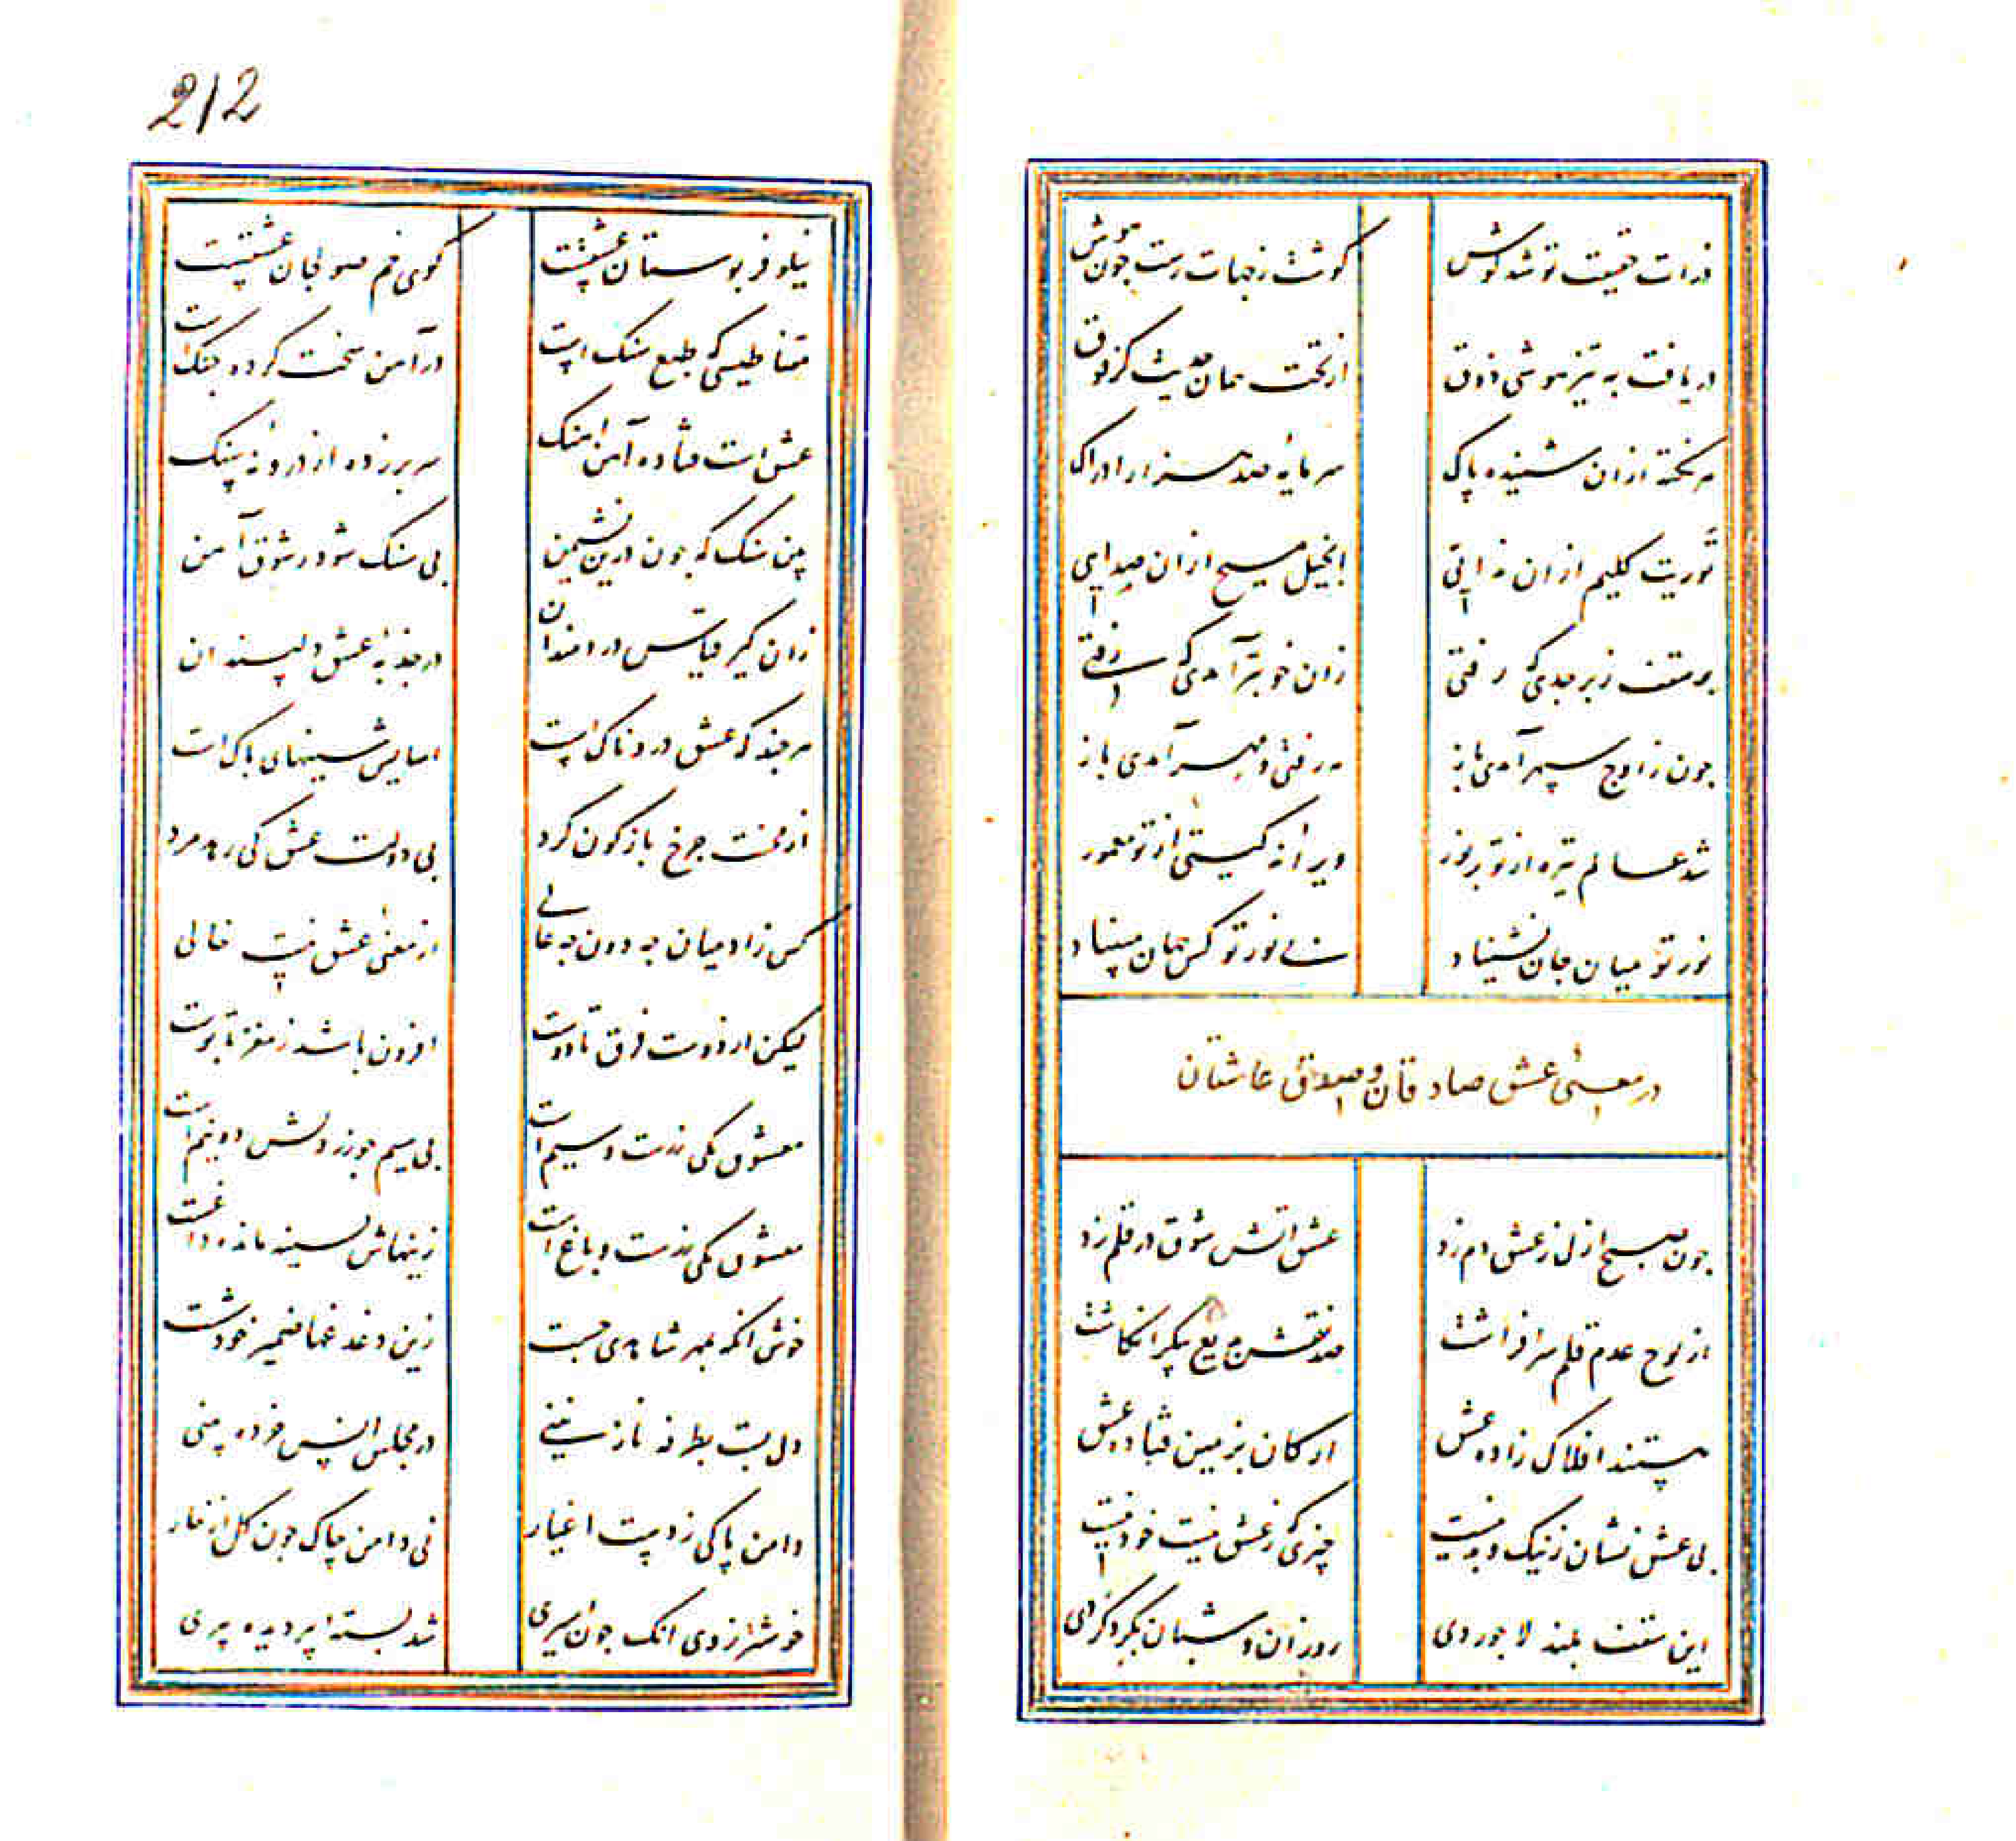 ذرات حقیقت تو شد کوش کوشت ز جهات رست چون هوش
دریافت به تیزهوشی ذوق از تحت همان حدیث کز فوق
هر نکته از ان شنیده پاک سرمایهٔ صد هزار ادراک
توریت کلیم از ان ندایی انجیل مسیح از ان صدایی
بر سقف زبرجدی که رفتی زان خوبتر آمدی که رفتی
چون ز اوج سپهر آمدی باز مه رفتی و مهر آمدی باز
شد عالم تیره از تو پرنور ویرانه کیتی از تو معمور
نور تو میان جان نشیناد بی نور تو کس جهان مبیناد
در معنی عشق صادقان و صدق عاشقان
چون صبح ازل ز عشق دم زد عشق اتش شوق در قلم زد
از لوح عدم قلم سر افراشت صد نقش بدیع پیکر انکاشت
هستند افلاک زاده عشق ارکان بزمین فتاده عشق
بی عشق نشان ز نیک و بد نیست چیزی که ز عشق نیست خود نیست
این سقف بلند لاجوردی روزان و شبان بکرد کردی
212
نیلوفر بوستان عشقست کوی خم صولجان عشقست
مقناطیسی که طبع سنک است در آهن سخت کرده چنک است
عشق است فتاده آهن اهنک سر بر زده از درونهٔ سنک
بین سنک که چون درین نشیمن بی سنک شود ز شوق آهن
زان کیر قیاس دردمندان در جذبهٔ عشق دلپسندان
هر چند که عشق دردناک است اسایش سینهای پاک است
از محنت چرخ باژکون کرد بی دولت عشق کی رهد مرد
کس زادمیان چه دون چه عالی از معنی عشق نیست خالی
لیکن از دوست فرق تا دوست افزون باشد ز مغز تا پوست
معشوق یکی زرست و سیم است بی سیم چو زر دلش دو نیم است
معشوق یکی رزست و باغ است زینهاش بسینه مانده داغست
خوش انکه بمهر شاهدی جست زین دغدغها ضمیر خود شست
دل بست بطرفه نازنینی در مجلس انس خرده بینی
دامن پاکی ز دست اغیار نی دامن چاک چون کل از خار
خوشتر زوی انک چون اسیری شد بستهٔ